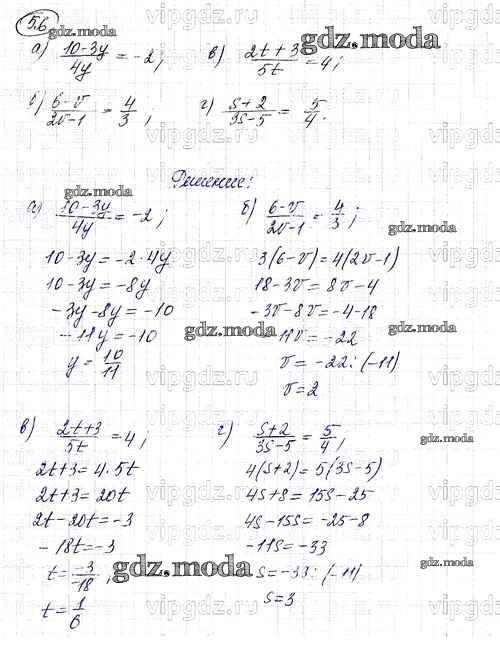 5.6
а) (10-3y)/4y = -2; в) (2t+3)/5t = 4;
б) (6-v)/(2v-1) = 4/3; г) (s+2)/(3s-5) = 5/4.
Решение:
а) (10-3y)/4y = -2;
10-3y = -2·4y
10-3y = -8y
-3y-8y = -10
-11y = -10
y = 10/11
б) (6-v)/(2v-1) = 4/3;
3(6-v) = 4(2v-1)
18-3v = 8v-4
-3v-8v = -4-18
-11v = -22
v = -22:(-11)
v = 2
в) (2t+3)/5t = 4;
2t+3 = 4·5t
2t+3 = 20t
2t-20t = -3
-18t = -3
t = -3/-18;
t = 1/6
г) (s+2)/(3s-5) = 5/4;
4(s+2) = 5(3s-5)
4s+8 = 15s-25
4s-15s = -25-8
-11s = -33
s = -33:(-11)
s = 3
gdz.moda
gdz.moda
gdz.moda
gdz.moda
gdz.moda
gdz.moda
gdz.moda
gdz.moda
gdz.moda
gdz.moda
vipgdz.ru
vipgdz.ru
vipgdz.ru
vipgdz.ru